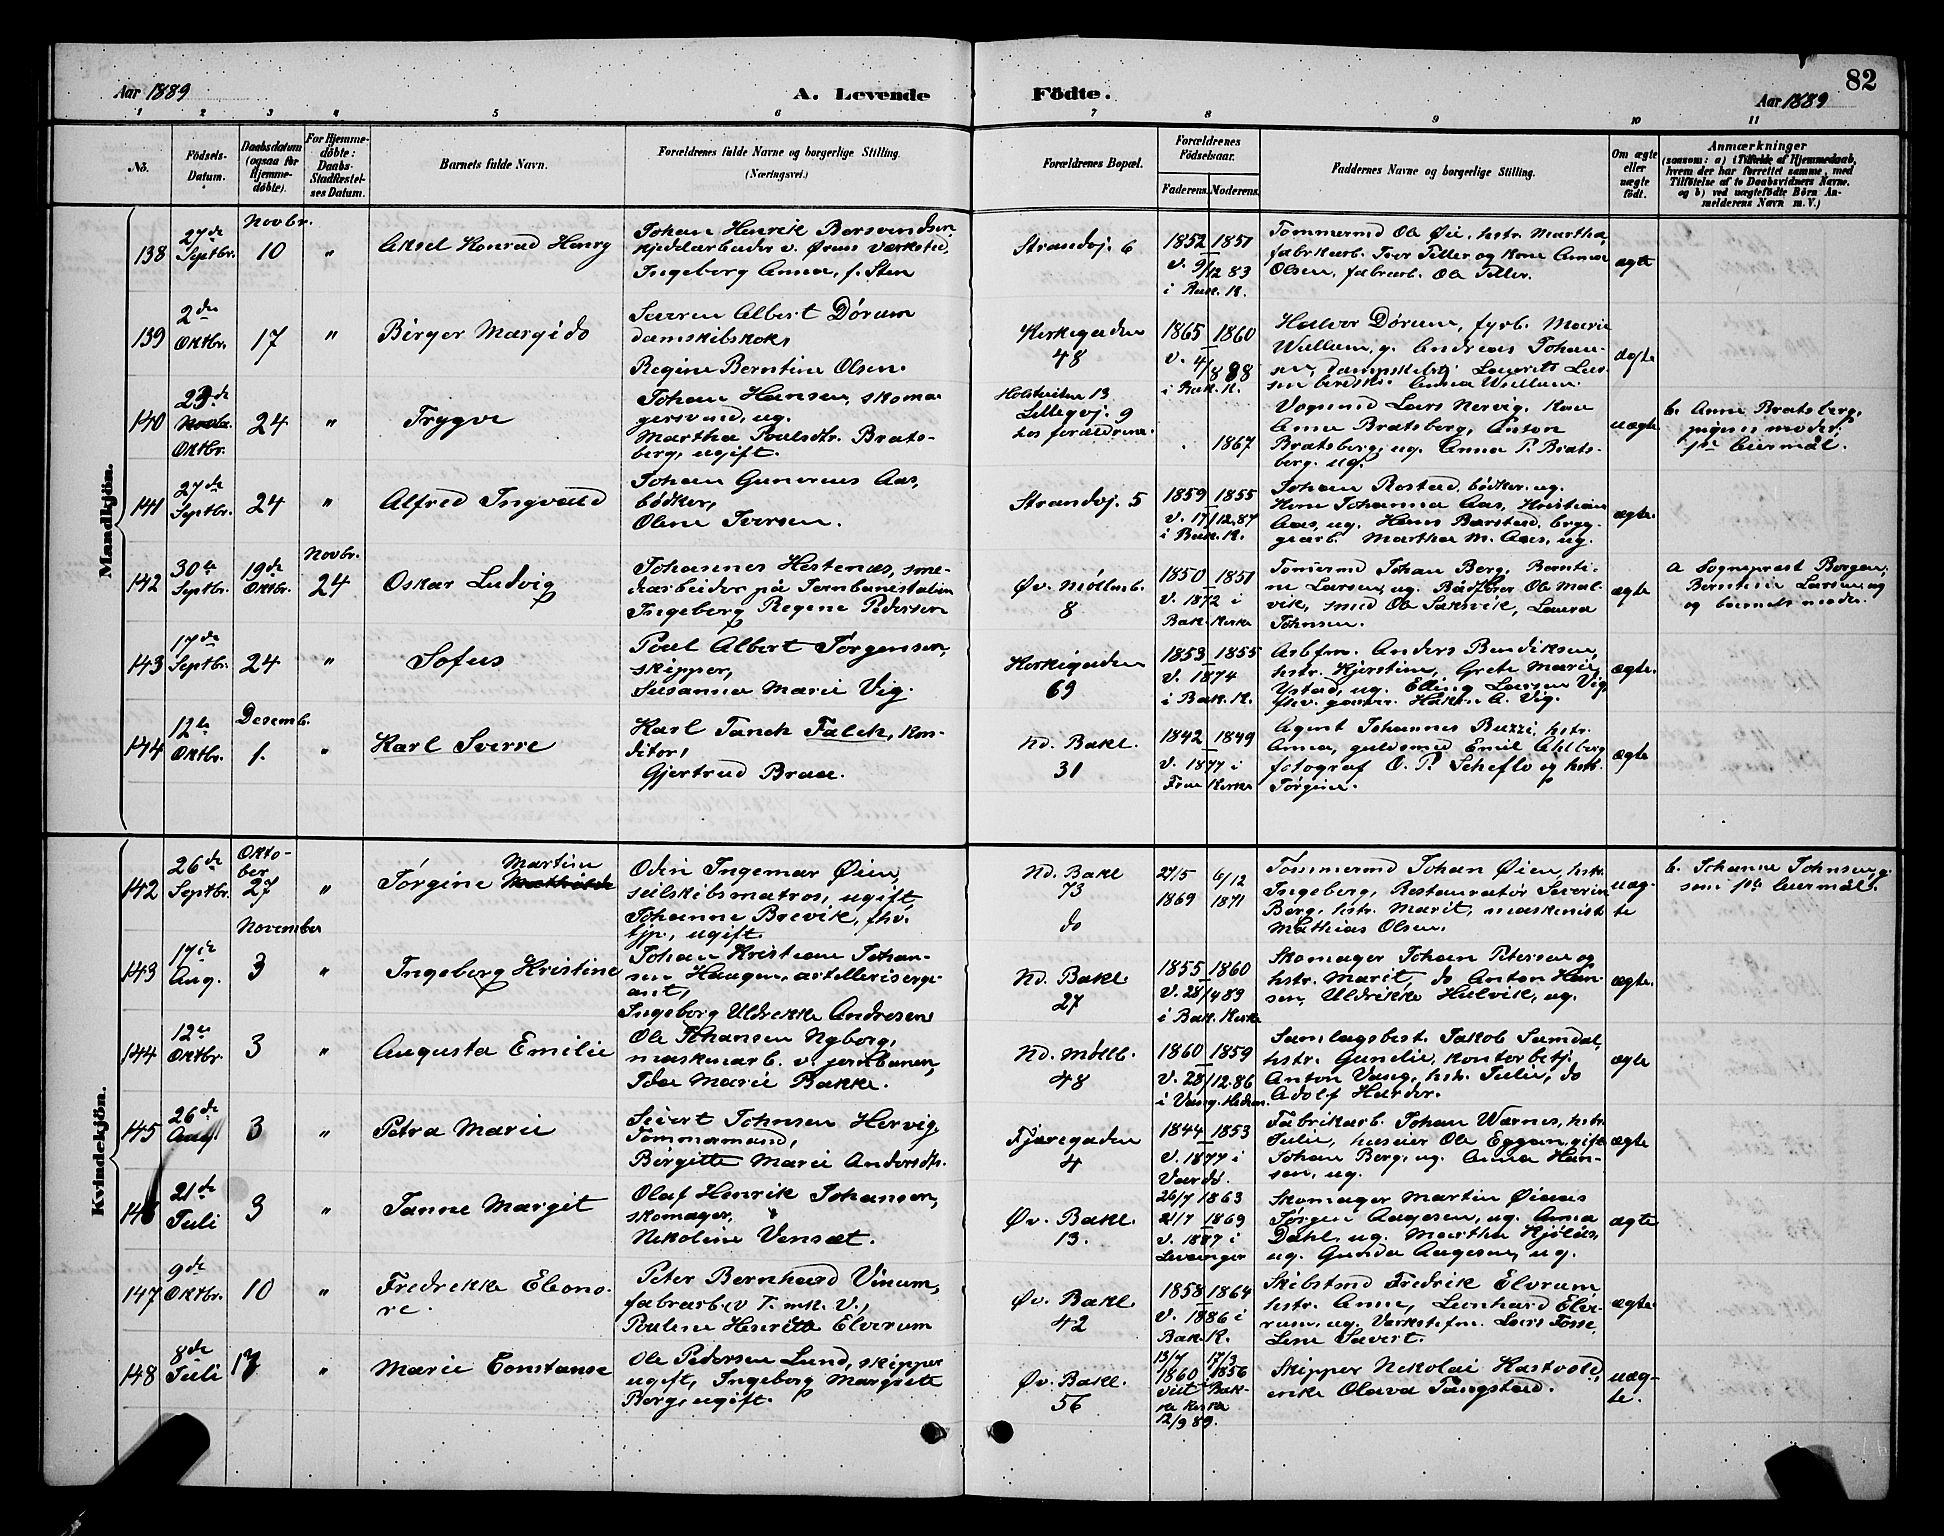 82
Aar 1889
A. Levende
Födte.
Aar 1889
1 2 3 4 5 6 7 8 9 10 11
No.
Födsels-
Datum.
Daabsdatum
(ogsaa for
Hjemme-
döbte).
For Hjemme-
döbte:
Daabs-
Stadfæstel-
ses Datum.
Barnets fulde Navn.
Forældrenes fulde Navne og borgerlige Stilling.
(Næringsvei.)
Forældrenes Bopæl.
Forældrenes
Födselsaar.
Faderens. Moderens.
Faddernes Navne og borgerlige Stilling.
Om ægte
eller
uægte
födt.
Anmærkninger
(saasom: a) i Tilfælde af Hjemmedaab,
hvem der har forrettet samme, med
Tilföielse af to Daabsvidners Navne,
og b) ved uægtefödte Börn An-
melderens Navn m. V.)
Mandkjön.
138
27de
Septbr.
Novbr.
10
"
Aksel Konrad Henry
Johan Henrik Borsvendsen
kjedelarbeider v. Ørens Værksted,
Ingeborg Anna, f. Sten
Strandvj. 6
1852 1857
v. 9/12 83
i Bak. K.
Tömmermd Ole Øie, hstr. Martha,
fabrikarb. Iver Tiller og kone Anna
Olsen, fabrarb. Ole Tiller.
ægte
139
2den
Oktbr.
17
"
Birger Margido
Sverre Albert Dörum
damskibskok,
Regine Berntine Olsen.
Kirkegaden
48
1865 1860
v. 4/8 88
i Bak. K.
Halvor Dörum, fyrb. Marie
Wullum, g. Andreas Johan-
sen, dampskelst. Laurits Lar-
sen Anna Wullum.
ægte
140
23de
Novbr.
Oktbr.
24
"
Trygve
Johan Hansen, skoma-
gersvend, ug.
Martha Poulsdtr. Brats-
berg, ugift.
13
Lillegvj. 9
hos forældrene.
1867
Vognmd Lars Hervig, kone
Anna Bratsberg, Anton
Bratsberg, ug. Anna P. Brats-
berg, ug.
uægte
b. Anna Bratsberg,
pigens moder.
1ste leiermål.
141
27de
Septbr.
24
"
Alfred Ingvald
Johan Gunerius Aas,
bödker,
Oline Iversen.
Strandvj. 5
1859 1855
v. 17/12.87
i Bak. K.
Johan Rostad, bödker, ug.
Kone Johanna Aas, Kristian
Aas, ug. Hans Barstad, brygg-
giarb. Martha M. Aas, ug.
ægte.
142
30te
Septbr.
19de
Oktbr.
Novbr.
24
Oskar Ludvig
Johannes Hestenæs, sme-
dearbeider på Jernbanestation
Ingeborg Regine Pedersen
Øv. Möllenb.
8
1850 1851
v. 1872 i
Bak. Kirke
Tömermd Johan Berg, Bernti-
ne Larsen, ug. Bådförer Ole Mal-
vik, smed Ole Saksvik, Laura
Johnsen.
ægte
a Sogneprest Borgen,
Berntine Larsen og
og barnets moder.
143
17de
Septbr.
24
"
Sofus
Poul Albert Jörgensen,
skipper,
Susanna Marie Vig.
Kirkegaden
69
1853 1855
v. 1874
i Bak. K.
Arbfm. Anders Bendiksen,
hstr. Kjerstine, Grete Marie
Ystad, ug. Elling Larsen Vig,
fhv. garver. Håkon A. Vig.
ægte.
144
12te
Oktbr.
Desemb.
1.
"
Karl Sverre
Karl Tanck Falck, kon-
ditor,
Gjertrud Braa.
Nd. Bakl.
31
1842 1849
v. 1877 i
Frue Kirke
Agent Johannes Buzzi, hstr.
Anna, guldsmed Emil Ahlberg
fotograf O. P. Scheflo og hstr.
Jörgine.
ægte
Kvindekjön.
142
26de
Septbr.
Okto-
ber
27
"
Jörgine Martine Mathilde
Odin Ingemar Øien,
seilskibsmatros, ugift,
Johanne Brevik, fhv.
tjp., ugift.
Nd. Bakl
73
do
27/5 6/12
1869 1871
Tömmermd Johan Øien, hstr.
Ingeborg, Restauratör Severin
Berg, hstr. Marit, maskinist
Mathias Olsen.
uæg-
te
b. Johanna Johnsen
som 1ste leiermål.
143
17de
Aug.
November
3
"
Ingeborg Kristine
Johan Kristian Johan-
sen Haugen, artellerisergе-
ant,
Ingeborg Uldrikke Andresen
Nd. Bakl
27
1855 1860
v. 28/4 89
i Bak. Kirke
Skomager Johan Petersen og
hstr. Marit, do Anton Han-
sen, Uldrikke Hulvik, ug.
ægte.
144
12te
Oktbr.
3
"
Augusta Emilie
Ole Johansen Nyborg,
maskinarb. v. jernbanen,
Ida Marie Bakke.
Nd. Möllb.
48
1860 1859
v. 28/12.86
i Vang. Hedem.
Samlagsbest. Jakob Sumdal,
hstr. Gunelie, kontorbetj.
Anton Vang, hstr. Julie, do
Adolf Harder.
ægte
145
26de
Aug.
3
"
Petra Marie
Sivert Johnsen Hervig,
Tömmermand,
Birgitte Marie Andersdtr.
Fjæregaden
4
1844 1853
v. 1877 i
Vardö.
Fabrikarb. Johan Wærnes, hstr
Julie, huseier Ole Eggan, gift
Johan Berg, ug. Anna Han-
sen, ug.
ægte
146
21de
Juli
3
"
Janne Margit
Olaf Henrik Johansen,
skomager,
Nikoline Vensæt.
Øv. Bakl.
13.
26/7 1863
21/7 1869
v. 1887 i
Levanger
Skomager Martin Øiaas
Jörgen Aagesen, ug. Anna
Dahl, ug. Martha Hjölås,
ug. Gunda Aagesen, ug.
ægte
147
9de
Oktbr.
10
"
Fredrikke Eleono-
re.
Peter Bernhard Vinum,
fabrarb. v T. mk. V.,
Pauline Henritte Elverum
Øv. Bakl.
42
1858 1864
v. 1886 i
Bak. K.
Skibstmd Fredrik Elvrum
hstr. Anne, Leonhard Elve-
rum, ug. Værkstefm. Lars Fosse,
Line Sivert.
ægte
148
8de
Juli
17
"
Marie Constanse
Ole Pedersen Lund, skipper
ugift, Ingeborg Margrette
Berg, ugift.
Øv. Bakl.
56
13/7 17/3
1860 1856
viet i Bak-
ke Kirke
12/9 89.
Skipper Nikolai Hastvold,
enke Olava Tangstad.
uæg-
te.